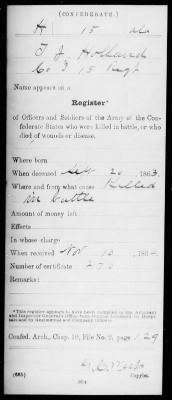 (CONFEDERATE.)
H 15 Ala
T J Holland
Co I 15 Regt
Name appears on a
Register*
of Officers and Soldiers of the Army of the Con-
federate States who were killed in battle, or who
died of wounds or disease.
Where born
When deceased 20, 1863
Where and from what cause Killed
in battle
Amount of money left
Effects
In whose charge
When received Nov 10, 186
Number of certificate
Remarks:
*This register appears to have been compiled in the Adjutant
and Inspector General's Office from
Confed. Arch., Chap. 10, File No. 2, page 129
(635)
Copyist.